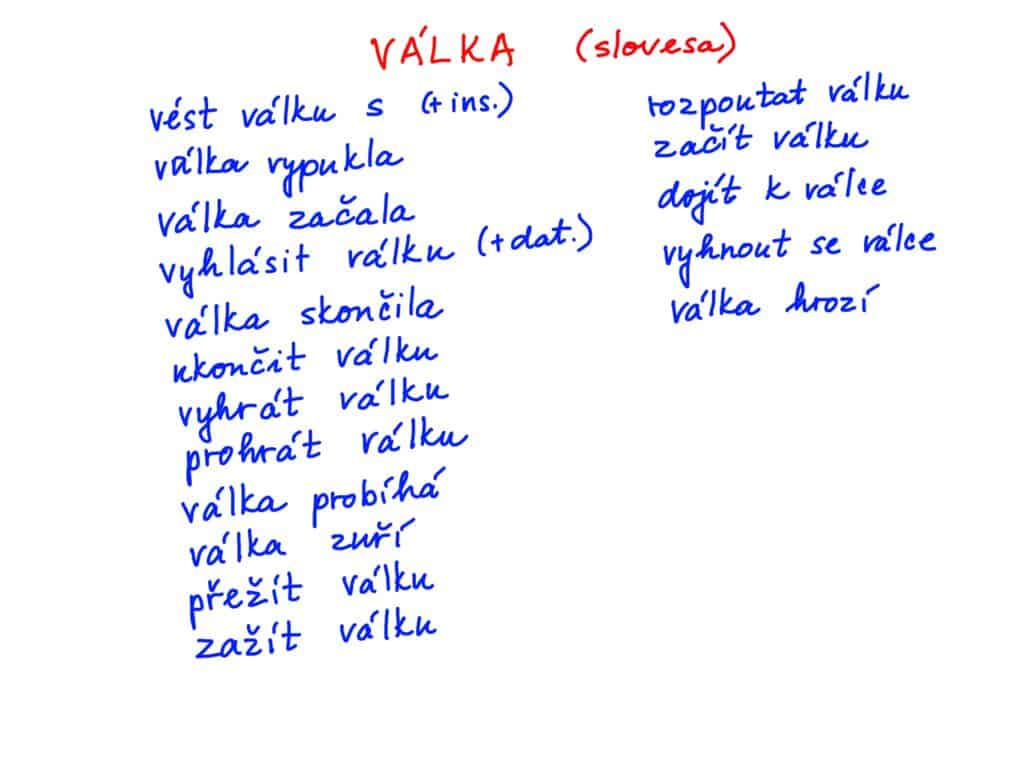 VÁLKA (slovesa)
vést válku s (+ ins.)
válka vypukla
válka začala
vyhlásit válku (+ dat.)
válka skončila
ukončit válku
vyhrát válku
prohrát válku
válka probíhá
válka zuří
přežít válku
zažít válku
rozpoutat válku
začít válku
dojít k válce
vyhnout se válce
válka hrozí